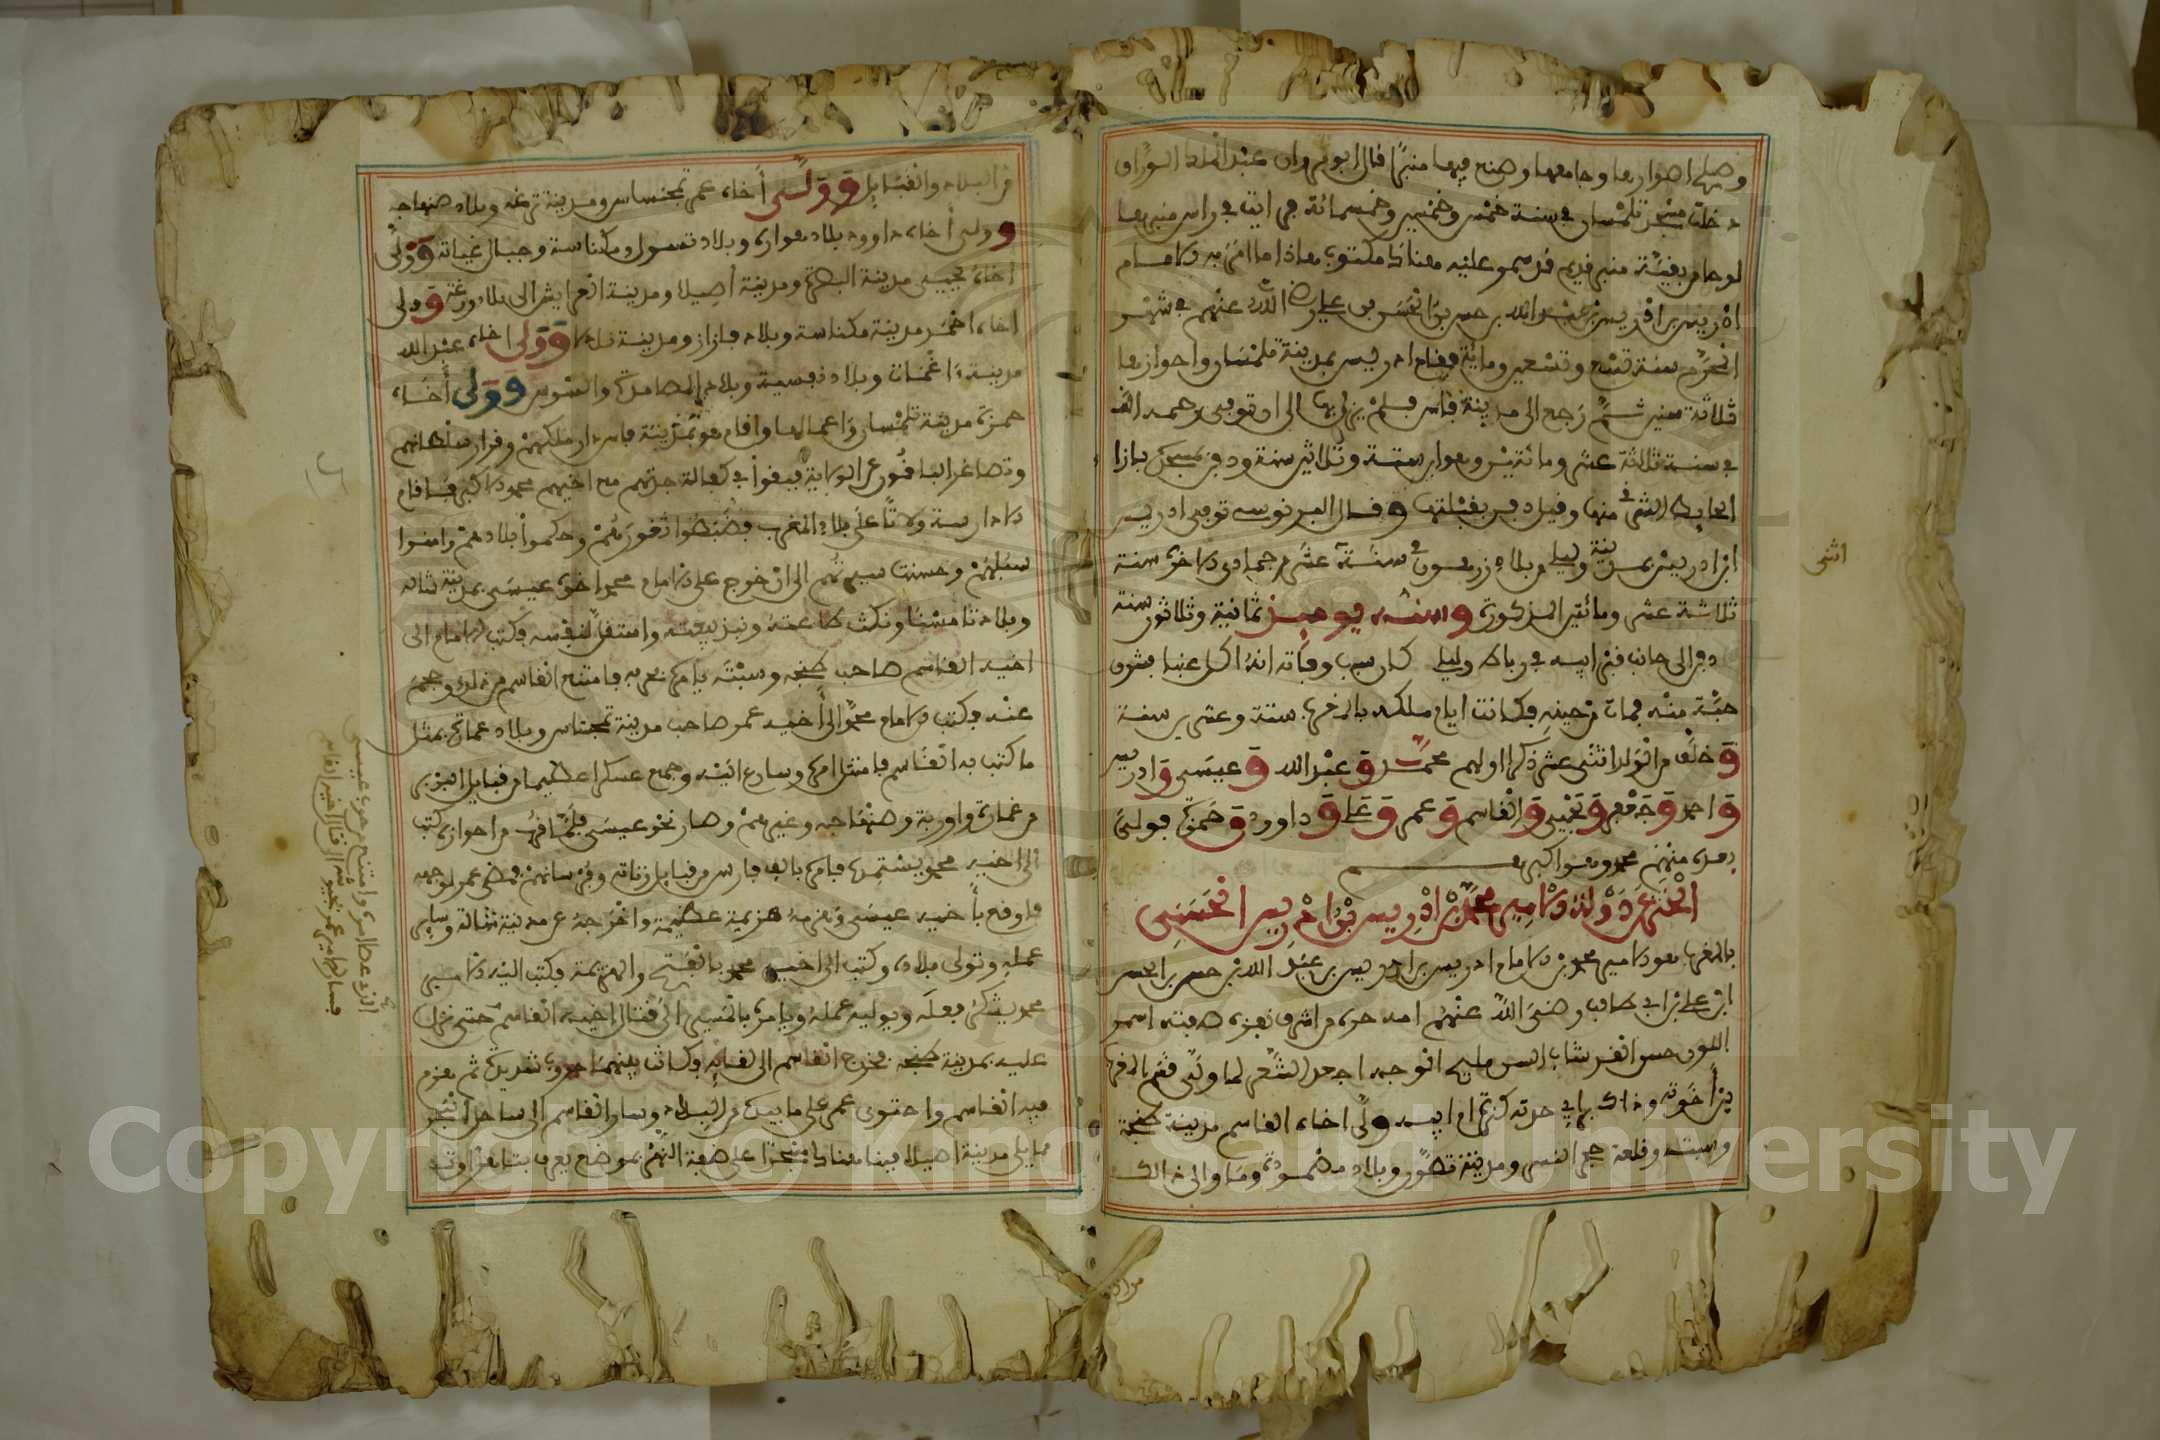 وصلى اسوارها وجامعها وصنع فيها منبرا قال ابو مروان عبد الملك الوراق
دخلت مسجد تلمسان في سنة خمس وخمسين وخمسمائة فرايت في راس منبرها
لوحا من بقية منبر قديم قد سمر عليه هنالك مكتوب هذا ما امر به الامام
ادريس بن ادريس بن عبد الله بن حسن بن الحسن بن علي رضي الله عنهم في شهر
المحرم سنة تسع وتسعين ومائة فاقام ادريس بمدينة تلمسان واحوازها
ثلاثة سنين ثم رجع الى مدينة فاس فلم يزل بها الى ان توفى رحمه الله
في سنة ثلاثة عشر ومائتين وهو ابن ستة وثلاثين سنة ودفن بمسجده بازا
الحايط الشرفي منها وقيل دفن بقبلتها وقال البرنوسي توفى ادريس
ابن ادريس بمدينة وليلي وبلاد زرهون في سنة عشر من جمادى الاخرة سنة
ثلاثة عشر ومائتين المذكورة وسنه يوميذ ثمانية وثلاثون سنة
دفن الى جانب قبر ابيه في رباط وليلي كان سبب وفاته انه اكل عنبا فشرق
حبة منه فمات من حينه فكانت ايام ملكه بالمغرب ستة وعشرين سنة
وخلف من الولد اثنى عشر ذكرا اولهم محمد وعبد الله وعيسى وادريس
واحمد وجعفر ويحيى والقاسم وعمر وعلي وداود وحمزة فولى
بعده منهم محمد وهو اكبرهم
الخبر عن دولة الامير محمد بن ادريس بن ادريس الحسني
بالمغرب هو الامير محمد بن الامام ادريس بن ادريس بن عبد الله بن حسن بن الحسن
ابن علي بن ابي طالب رضى الله عنهم امه حرة من اشراف نفزة صفته اسمر
اللون حسن القد شاب السن مليح الوجه اجعد الشعر لما ولى قسم المغرب
بين اخوته وذلك براي جدته كنزة ام ابيه ولى اخاه القاسم مدينة طنجة
وسبته وقلعة حجر النسر ومدينة تطوان وبلاد مصمودة وما والى ذالك
اثنى
من البلاد والقبايل وولى أخاه عمر تجنساس ومدينة ترغه وبلاد صنهاجه
وولى أخاه داوود بلاد هوارة وبلاد تسول ومكناسة وجبال غياتة وولى
اخاه يحيى مدينة البصرة ومدينة أصيلا ومدينة العرايش الى بلاد ورغة وولى
اخاه احمد مدينة مكناسة وبلاد فازاز ومدينة تادلا وولى اخاه عبد الله
مدينة اغمات وبلاد نفيسة وبلاد المصامدة والسوس وولى أخاه
حمزة مدينة تلمسان واعمالها واقام هو بمدينة فاس دار ملكهم وقرار سلطانهم
وتصاغر الباقون عن الولاية فبقوا في كفالة جدتهم مع اخيهم محمد الاكبر فاقام
الادارسة ولاتا على بلاد المغرب فضبطوا ثغورهم وحكموا بلادهم وامنوا
سبلهم وحسنت سيرتهم الى ان خرج على الامام محمد اخوه عيسى بمدينة شالة
وبلاد تامسنا ونكث طاعته ونبذ بيعته واستقل لنفسه فكتب الامام الى
اخيه القاسم صاحب طنجه وسبتة يامره بحربه فامتنع القاسم من ذلك
عنه فكتب الامام محمد الى أخيه عمر صاحب مدينة تجساس وبلاد غمارة بمثل
ما كتب به القاسم فامتثل امره وسارع اليه وجمع عسكرا عظيما من قبايل البربر
من غمارة واوربة وصنهاجه وغيرهم وسار نحو عيسى فلما قرب من احوازه كتب
الى اخيه محمد يستمده فامده بالف فارس من قبايل زناتة وفرسانهم فمضى عمر لوجهه
فاوقع باخيه عيسى وهزمه هزيمة عظيمة واخرجه عن مدينة شالة وساير
عمله وتولى بلاده وكتب الى اخيه محمد بالفتح والهزيمة فكتب اليه الامير
محمد يشكر فعله ويوليه عمله ويامره بالمسير الى قتال اخيه القاسم حتى نزل
عليه بمدينة طنجه فخرج القاسم الى لقايه وكانت بينهما حروب شديدة ثم هزم
فيه القاسم واحتوى عمر على ما بيده من البلاد وسار القاسم الى ساحل البحر
مما يلي مدينة اصيلا فبنا هنالك مسجدا على ضفة النهر بموضع يعرف